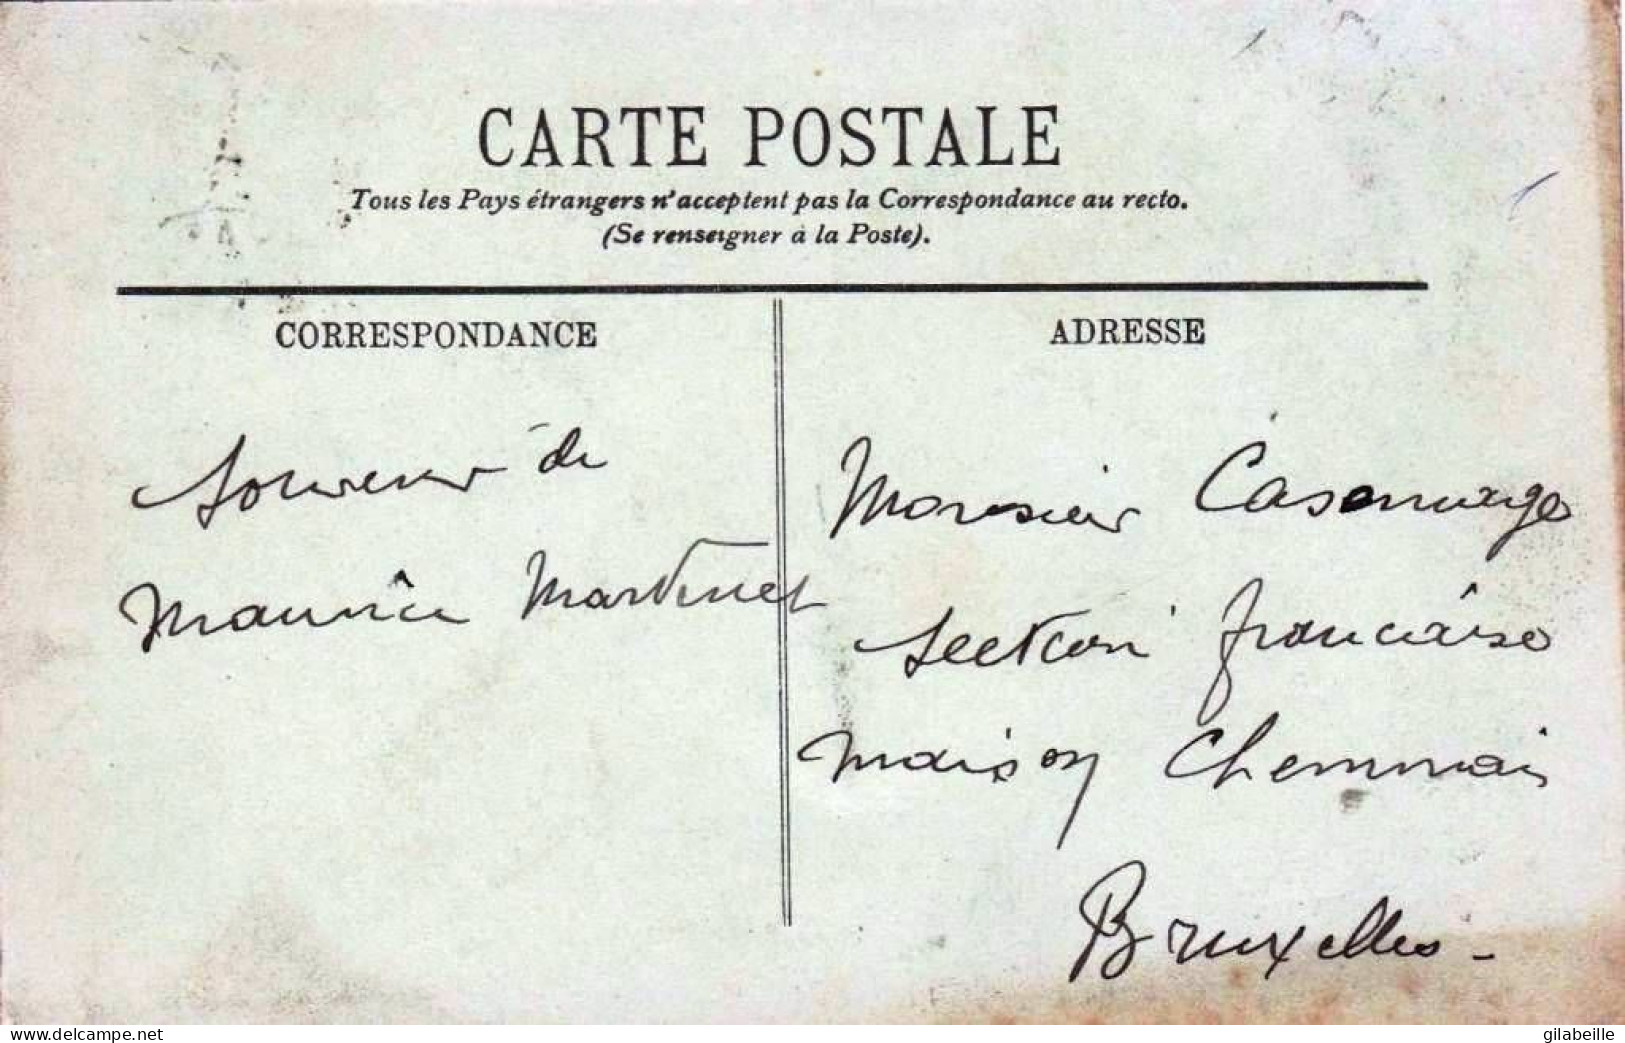 CARTE POSTALE
Tous les Pays étrangers n'acceptent pas la Correspondance au recto.
(Se renseigner à la Poste).
CORRESPONDANCE
Souvenir de
Maurice Martinet
ADRESSE
Monsieur
Section française
Maison
Bruxelles -
delcampe.net
gilabeille